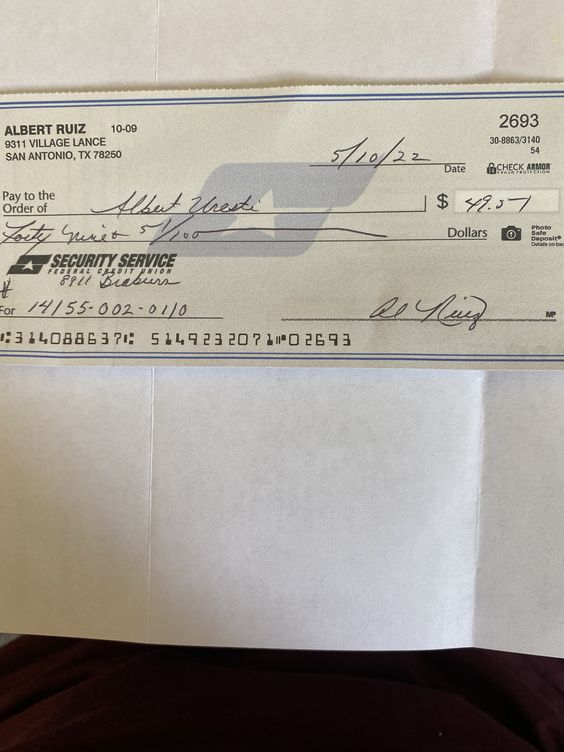 ALBERT RUIZ 10-09
9311 VILLAGE LANCE
SAN ANTONIO, TX 78250
2693
30-8863/3140
54
5/10/22
Date
CHECK ARMOR
FRAUD PROTECTION
Pay to the
Order of Albert Uresti $ 49.51
Forty Nine & 51/100 Dollars
Photo
Safe
Deposit®
Details on back
SECURITY SERVICE
FEDERAL CREDIT UNION
8911
#
For 14155-002-0110 Al Ruiz MP
⑆314088637⑆ 5149232071⑈02693